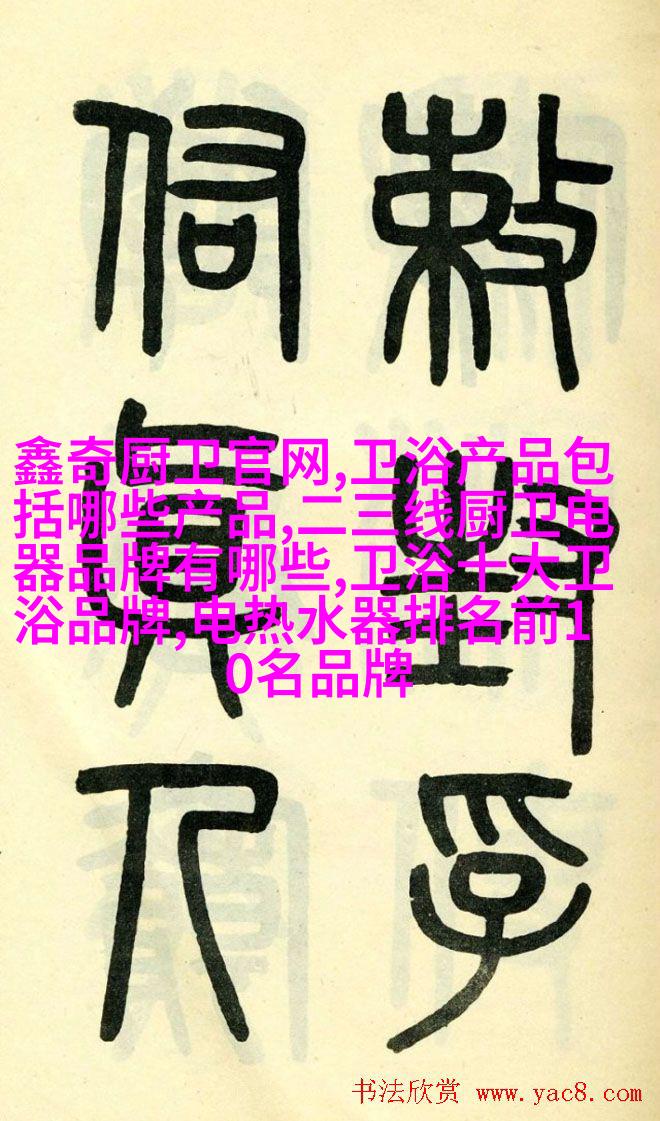 敕野孚
真人
鑫奇厨卫官网,卫浴产品包
括哪些产品,二三线厨卫电
器品牌有哪些,卫浴十大卫
浴品牌,电热水器排名前1
0名品牌
书法欣赏 www.yac8.com